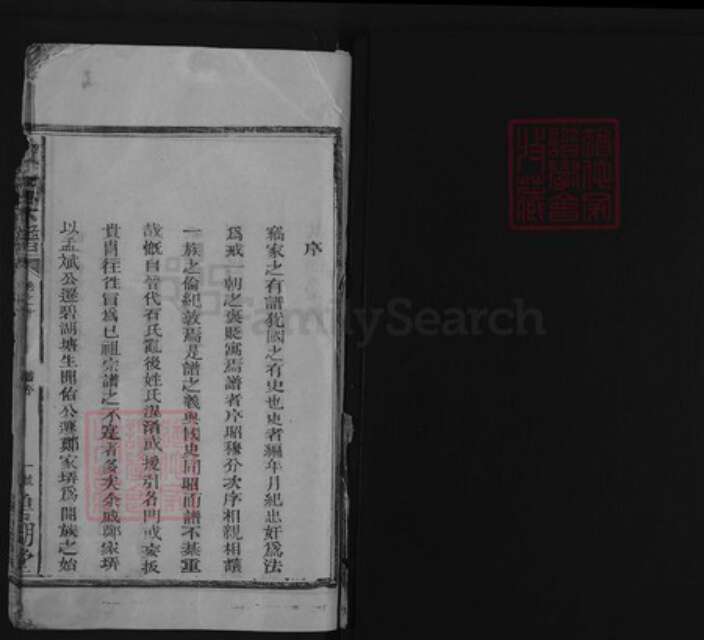 序
竊家之有譜猶國之有史也史者編年月紀忠奸爲法
爲戒一朝之褒貶寓焉譜者序昭穆分次序相親相讓
一族之倫紀敦焉是譜之義與國史同昭而譜不綦重
哉慨自晉代石氏亂後姓氏混淆或援引名門或妄扳
貴胄往往冒爲已祖宗譜之不寔者多矣余戚鄭家塝
以孟斌公遷碧湖塘生開佑公遷鄭家塝爲開族之始
FamilySearch